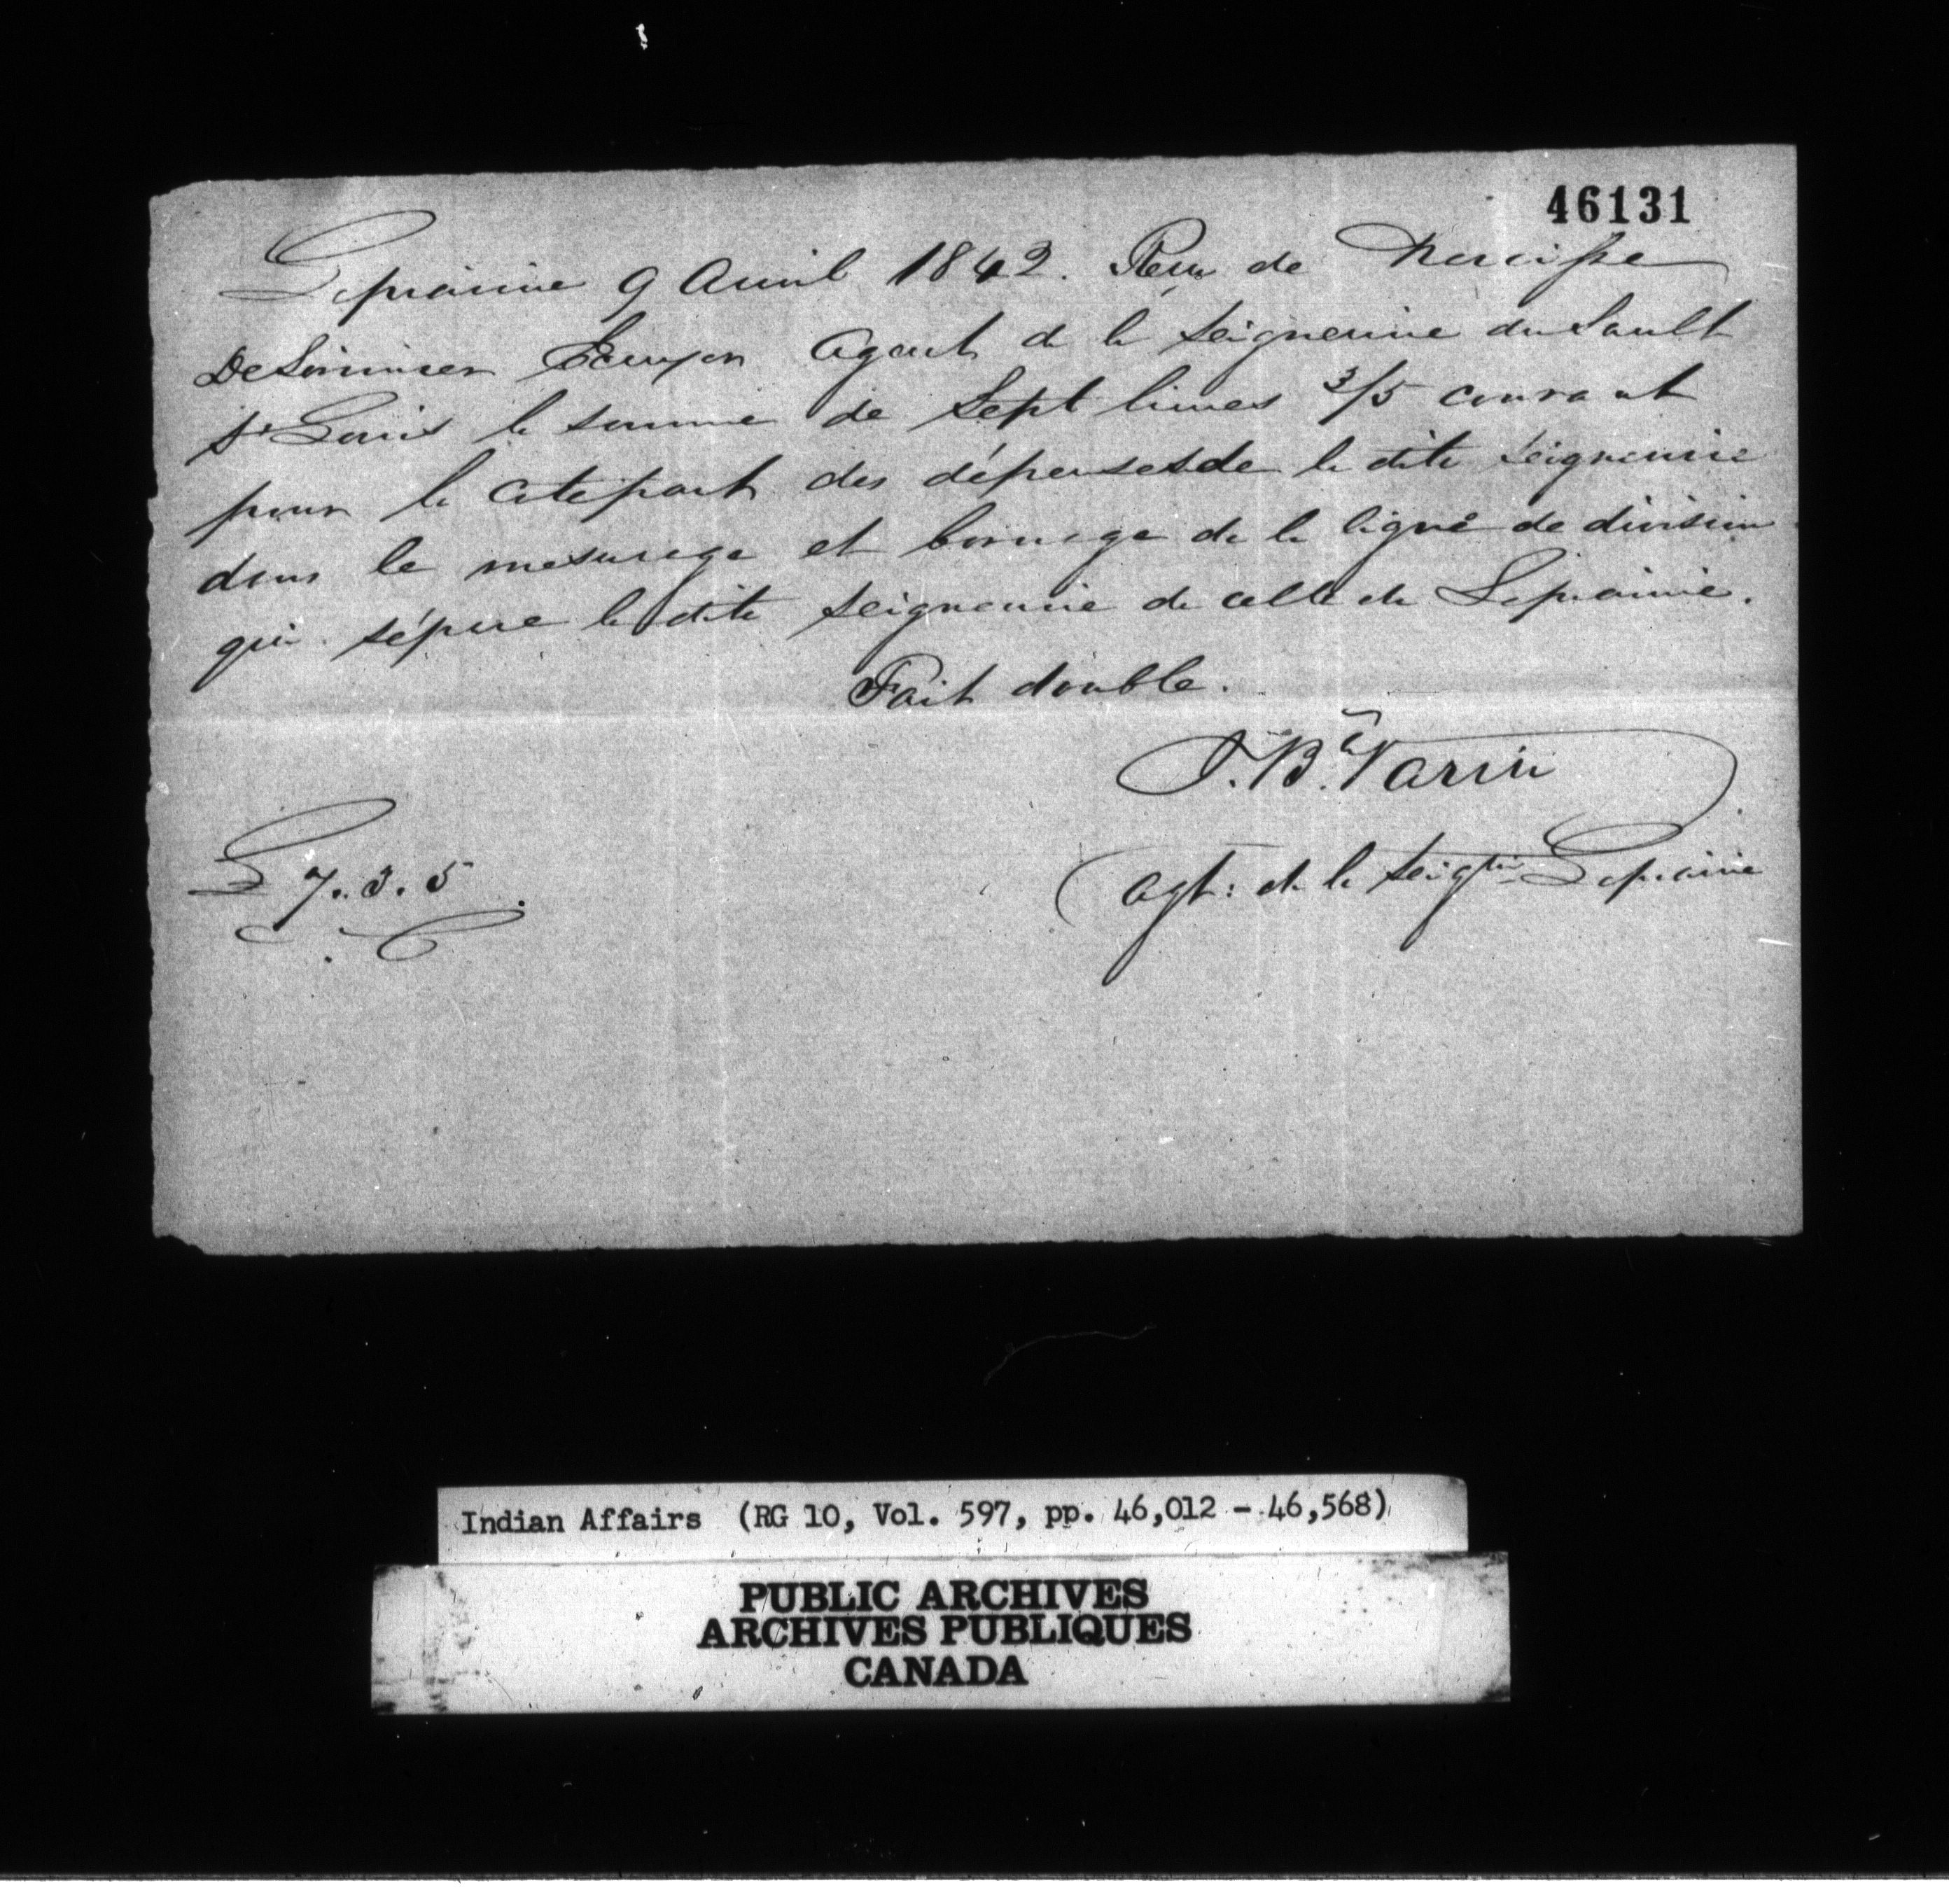 46131
Laprairie 9 Avril 1842. Reçu de Narcisse
DeLorimier Ecuyer Agent de la Seigneurie du Sault
St Louis la somme de Sept livres 3/5 courant
pour la cotepart des dépenses de la dite Seigneurie
dans le mesurage et bornage de la ligne de division
qui sépare la dite Seigneurie de celle de Laprairie.
Fait double.
J. Bte Varin
agt: de la Seigrie Laprairie
£ 7. 3. 5
Indian Affairs (RG 10, Vol. 597, pp. 46,012 - 46,568)
PUBLIC ARCHIVES
ARCHIVES PUBLIQUES
CANADA